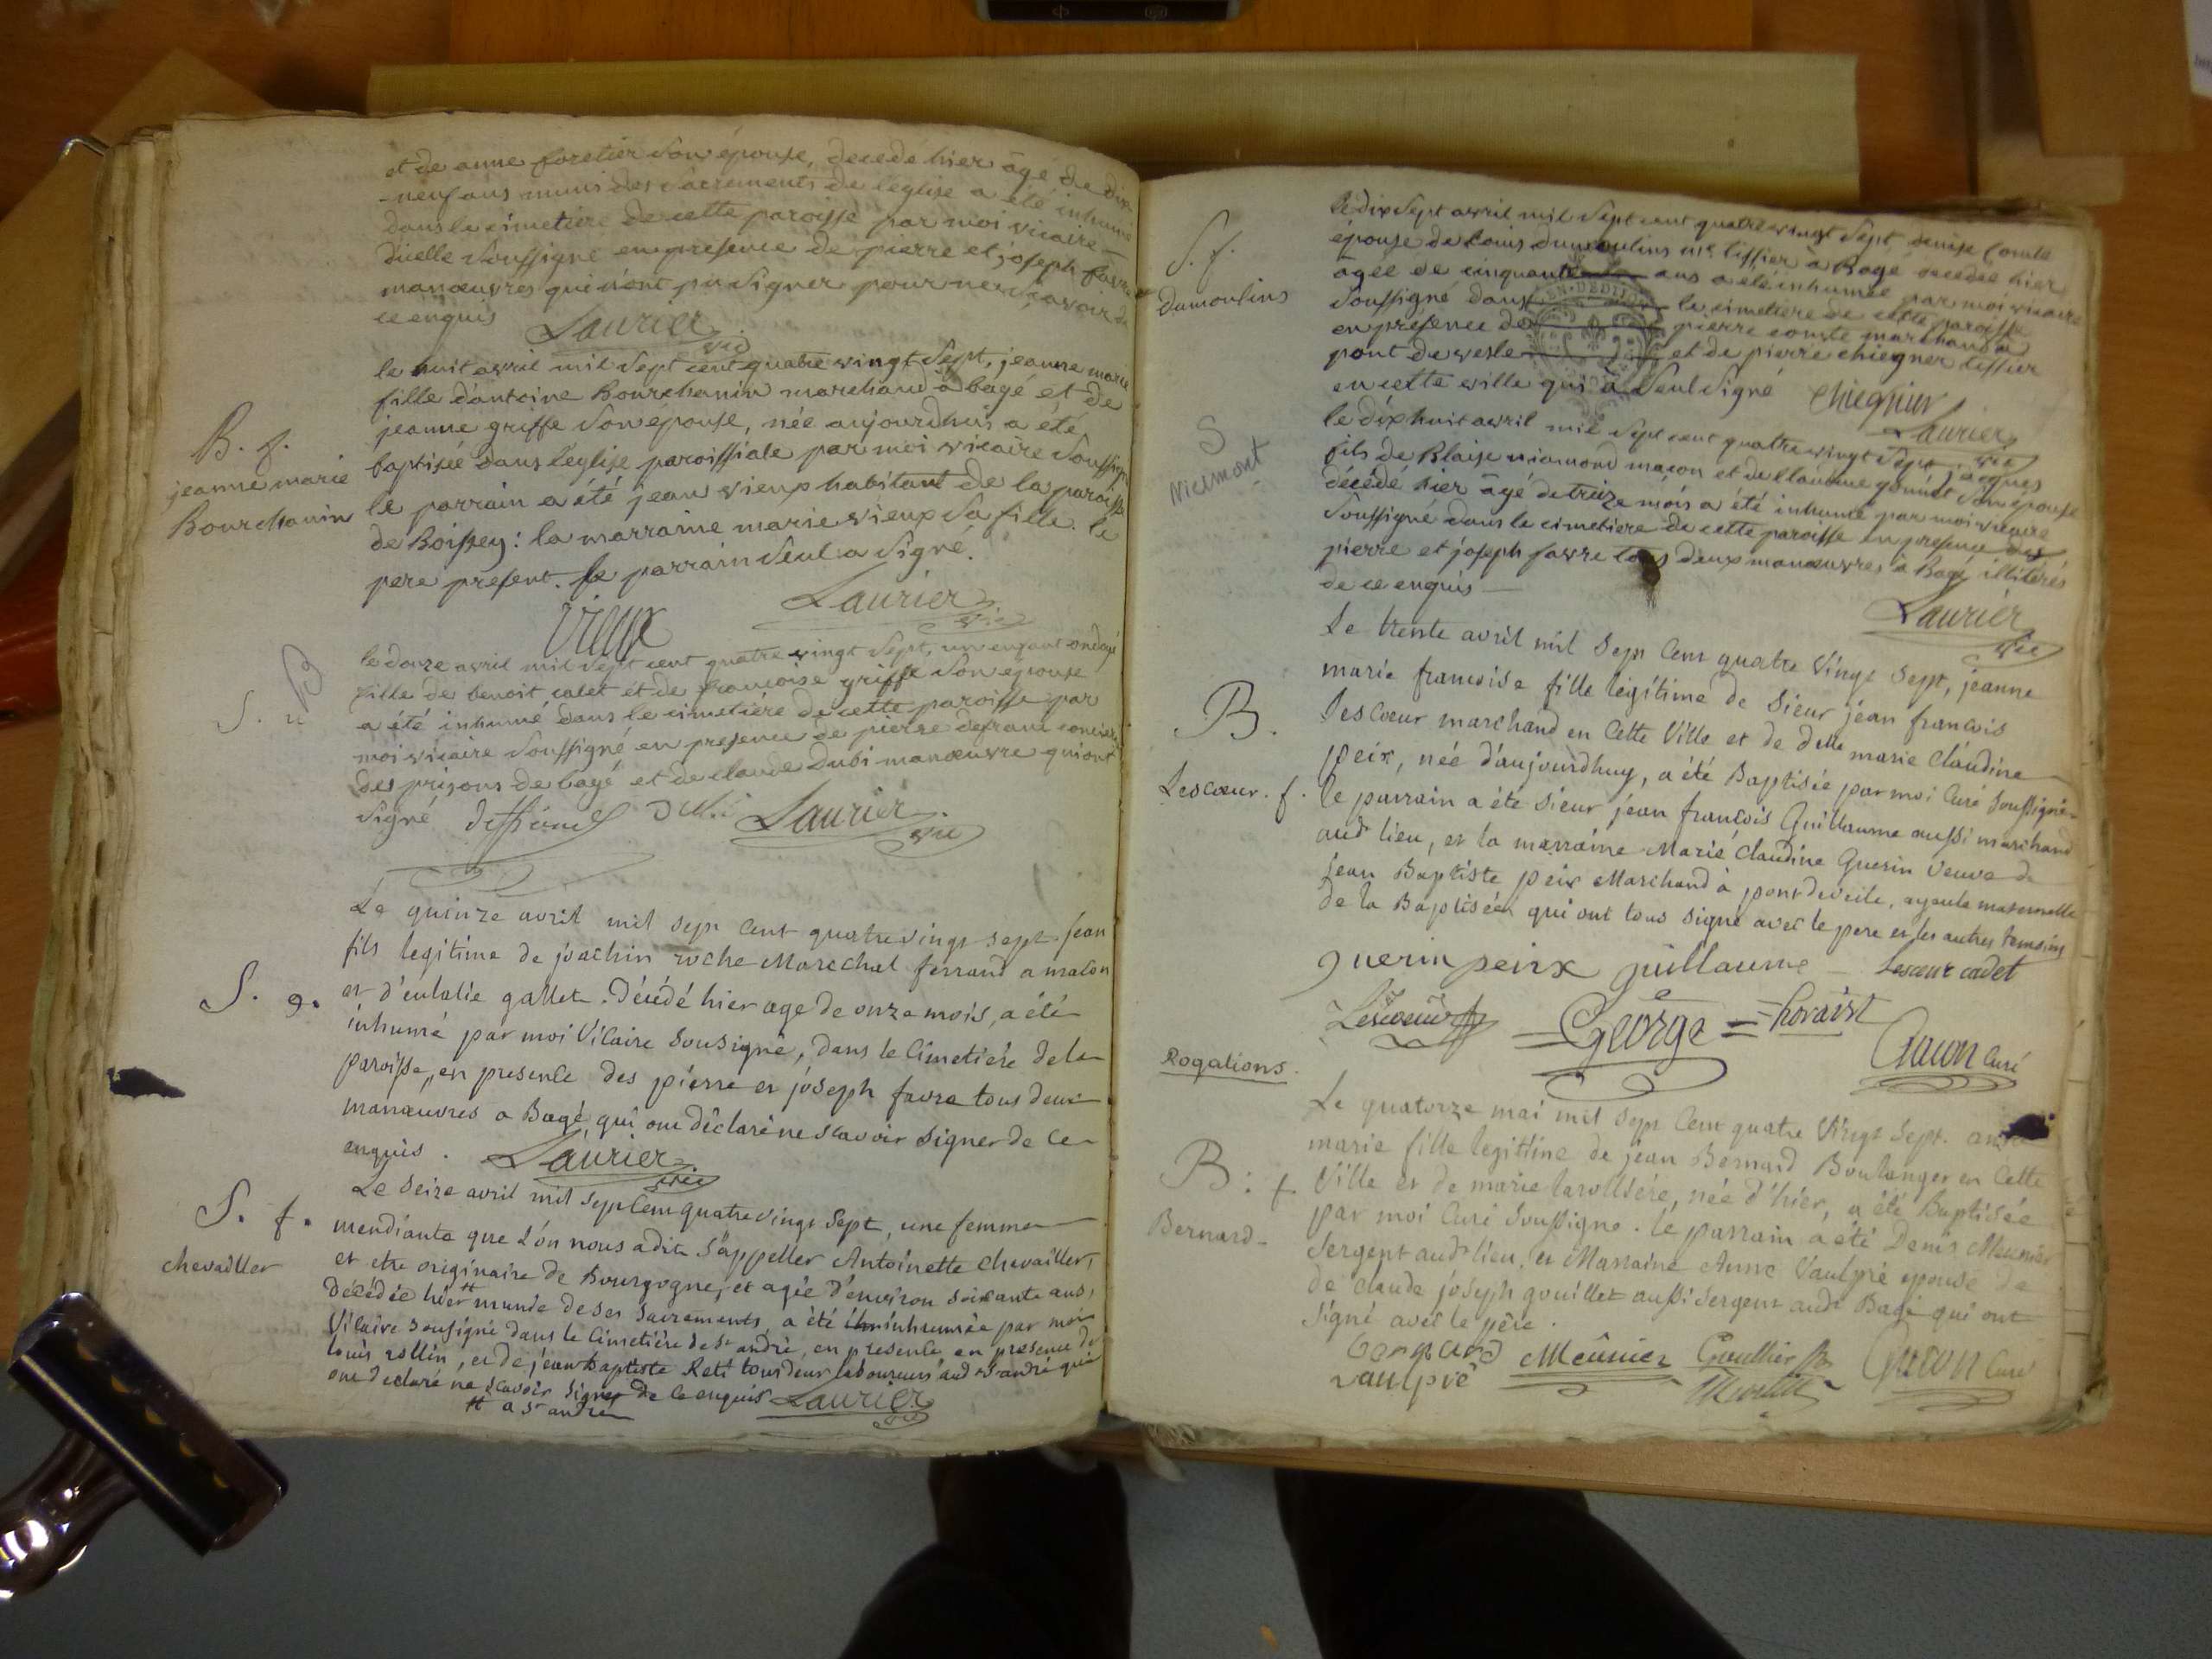 et de anne foretier son épouse, decedé hier âgé de dix
-neuf ans muni des sacrements de l'eglise a été inhumé
dans le cimetiere de cette paroisse par moi vicaire
d'icelle soussigné en presence de pierre et joseph favre
manoeuvres qui n'ont pu signer pour ne sçavoir de
ce enquis Laurier
vic
le huit avril mil sept cent quatre vingt sept, jeanne marie
fille d'antoine Bourchanin marchand à bagé et de
jeanne griffe son épouse, née aujourdhui a été
baptisée dans l'eglise paroissiale par moi vicaire soussigné
B. f.
jeanne marie
Bourchanin
le parrain a été jean vieux habitant de la paroisse
de Boissey: la marraine marie vieux sa fille. le
pere present. le parrain seul a signé.
vieux Laurier
vic
S. B
le douze avril mil sept cent quatre vingt sept, un enfant ondoyé
fille de benoit calet et de françoise griffe son épouse
a été inhumé dans le cimetiére de cette paroisse par
moi vicaire soussigné en presence de pierre defranc concierge
des prisons de bagé et de claude dubi manoeuvre qui ont
signé Laurier
vic
Le quinze avril mil sept Cent quatrevingt sept jean
fils legitime de joachin roche Marechal ferrand a macon
S. g.
et d'eulalie gallet. décédé hier age de onze mois, a été
inhumé par moi Vicaire sousigné, dans le Cimetiére de la
paroisse, en presence des pierre et joseph favre tous deux
manoeuvres a Bagé qui ont déclaré ne scavoir signer de ce
enquis. Laurier
vic
Le seize avril mil sept Cent quatre vingt sept, une femme
S. f.
chevallier
mendiante que l'on nous a dit s'appeller Antoinette chevallier,
et etre originaire de Bourgogne, et agée d'environ soixante ans,
décédée hier # munie de ses sacrements, a été inhumée par moi
Vicaire sousigné dans le Cimetiére de st andré, en presence en presence de
louis rollin, et de jean baptiste Reti tous deux laboureurs aud st andré qui
ont declaré ne scavoir signer de ce enquis Laurier
# a st andré
le dix sept avril mil sept cent quatre vingt sept, denise comte
S. f.
dumoulins
épouse de louis dumoulins me tissier à Bagé decedée hier
âgée de cinquante ans a été inhumée par moi vicaire
soussigné dans le cimetiere de cette paroisse
en présence de pierre comte marchand à
pont de vesle et de pierre chiegner tissier
en cette ville qui a seul signé chiegnier
Laurier
vic
S
Niermont
le dix huit avril mil sept cent quatre vingt sept jacques
fils de Blaise niamond maçon et de claudine son épouse
décédé hier âgé de treize mois a été inhumé par moi vicaire
soussigné dans le cimetiere de cette paroisse en presence des
pierre et joseph favre tous deux manoeuvres a Bagé illitérés
de ce enquis
Laurier
vic
Le trente avril mil sept Cent quatre Vingt sept, jeanne
marie francoise fille légitime de Sieur jean francois
B.
Lescoeur. f.
Lescoeur marchand en Cette Ville et de delle marie Claudine
peix, née d'aujourdhuy, a été Baptisée par moi Curé soussigné
le parrain a été sieur jean francois Guillaume aussi marchand
aud lieu, et la marraine Marie Claudine Guerin veuve de
jean Baptiste peix Marchand à pontdeveile, ayeule maternelle
de la Baptisée qui ont tous signé avec le pere et les autres temoins
guerin peix guillaume Lescoeur cadet
Lescoeur George
Cuwon Curé
Rogations.
Le quatorze mai mil sept Cent quatre Vingt sept. anne
marie fille legitime de jean Bernard Boulanger en Cette
B: f
Bernard
Ville et de marie, née d'hier, a été Baptisée
par moi Curé soussigné. le parrain a été Denis Meunier
sergent aud lieu, et Marraine Anne Vaulpré epouse de
de claude joseph gouillet aussi sergent aud Bagé qui ont
signé avec le père.
bernard Meunier Gaullier
vaulpré Curé